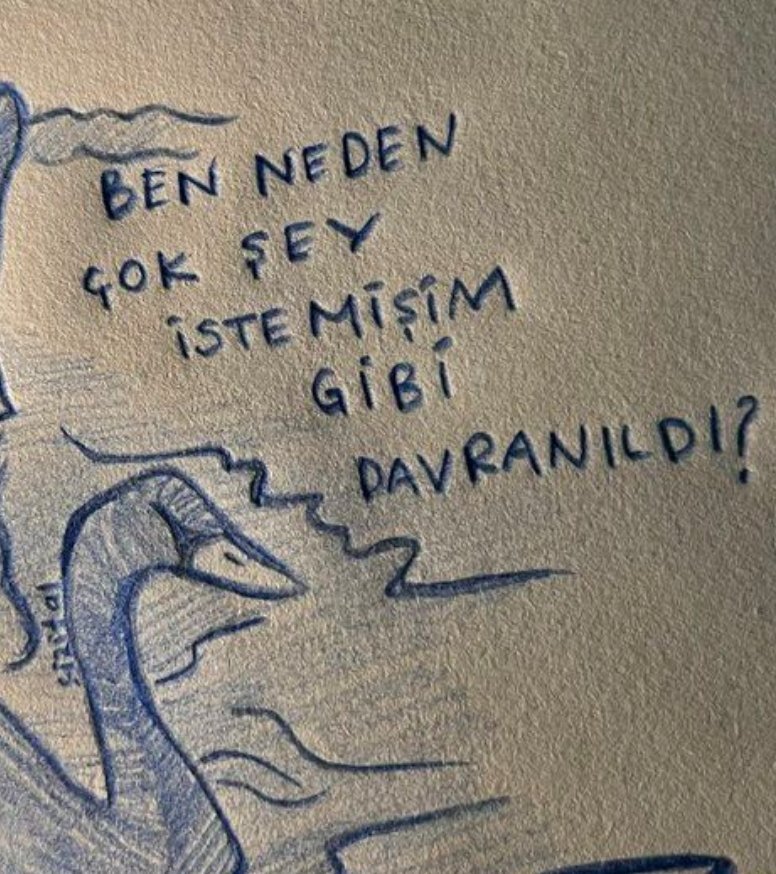 BEN NEDEN
ÇOK ŞEY
İSTEMİŞİM
GİBİ
DAVRANILDI?